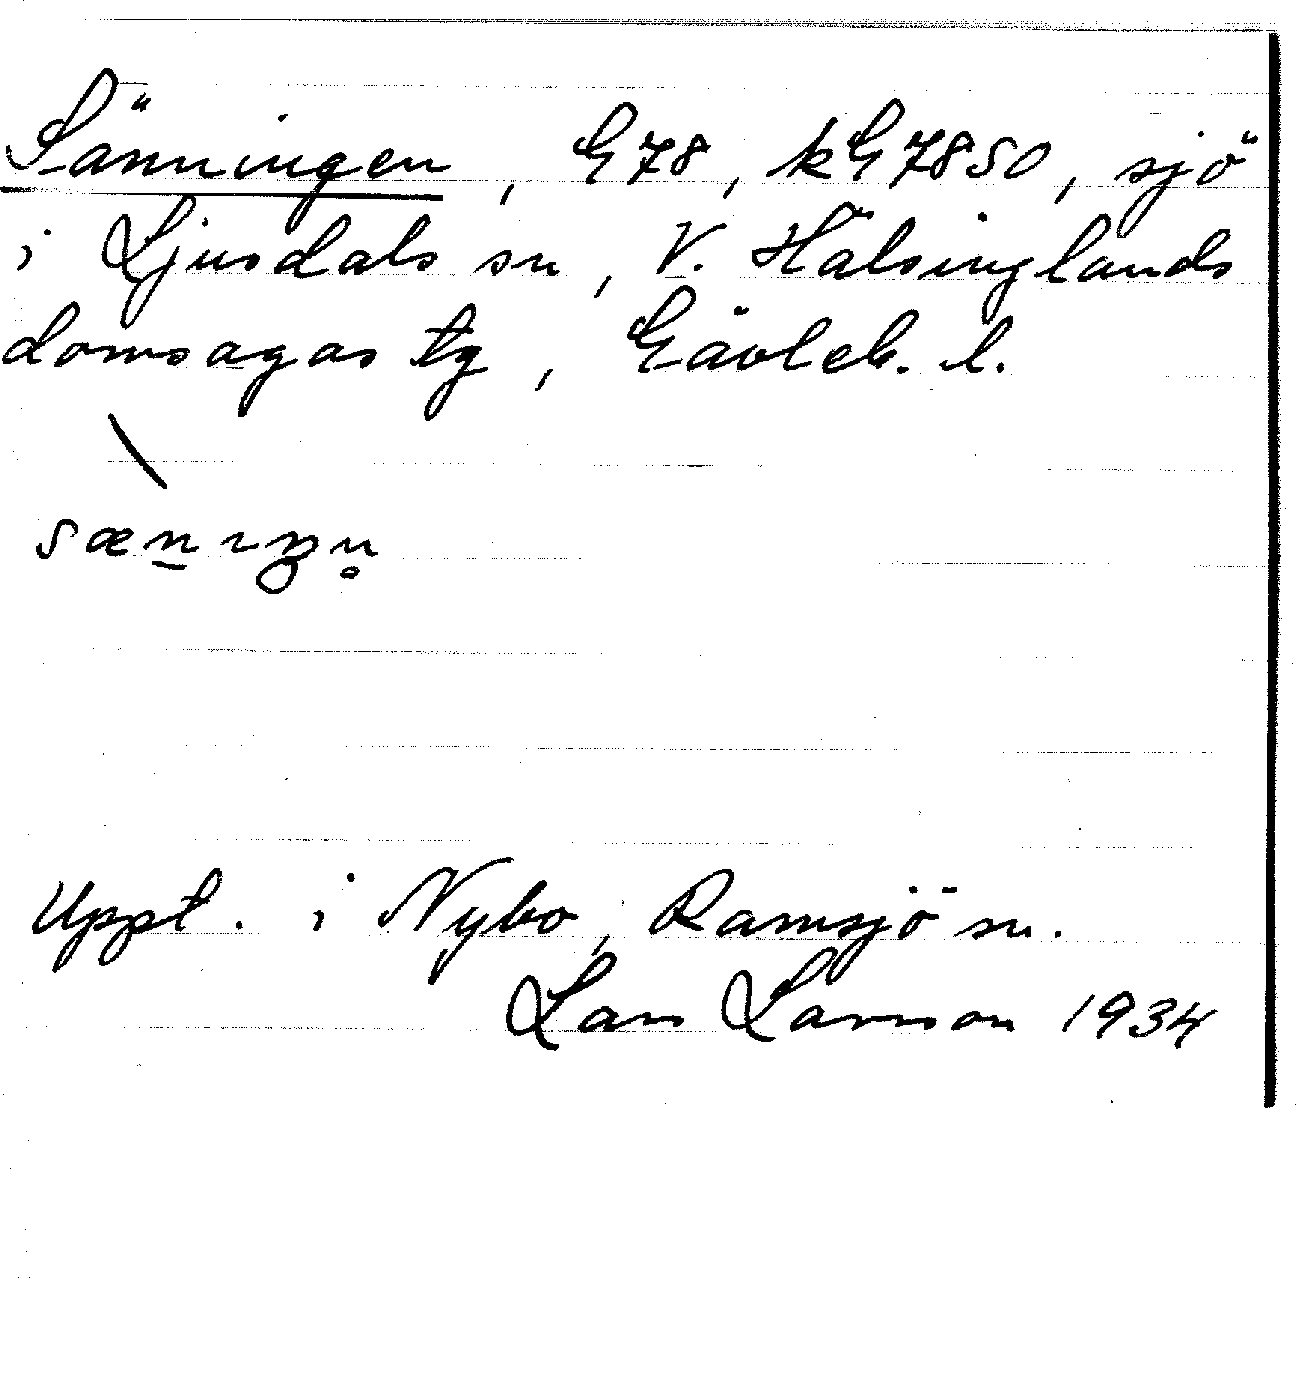 Sänningen, G78, kG7850, sjö
i Ljusdals sn, V. Hälsinglands
domsagas tg, Gävleb. l.
sæn̠ıŋn̥
Uppt. i Nybo, Ramsjö sn.
Lars Larsson 1934